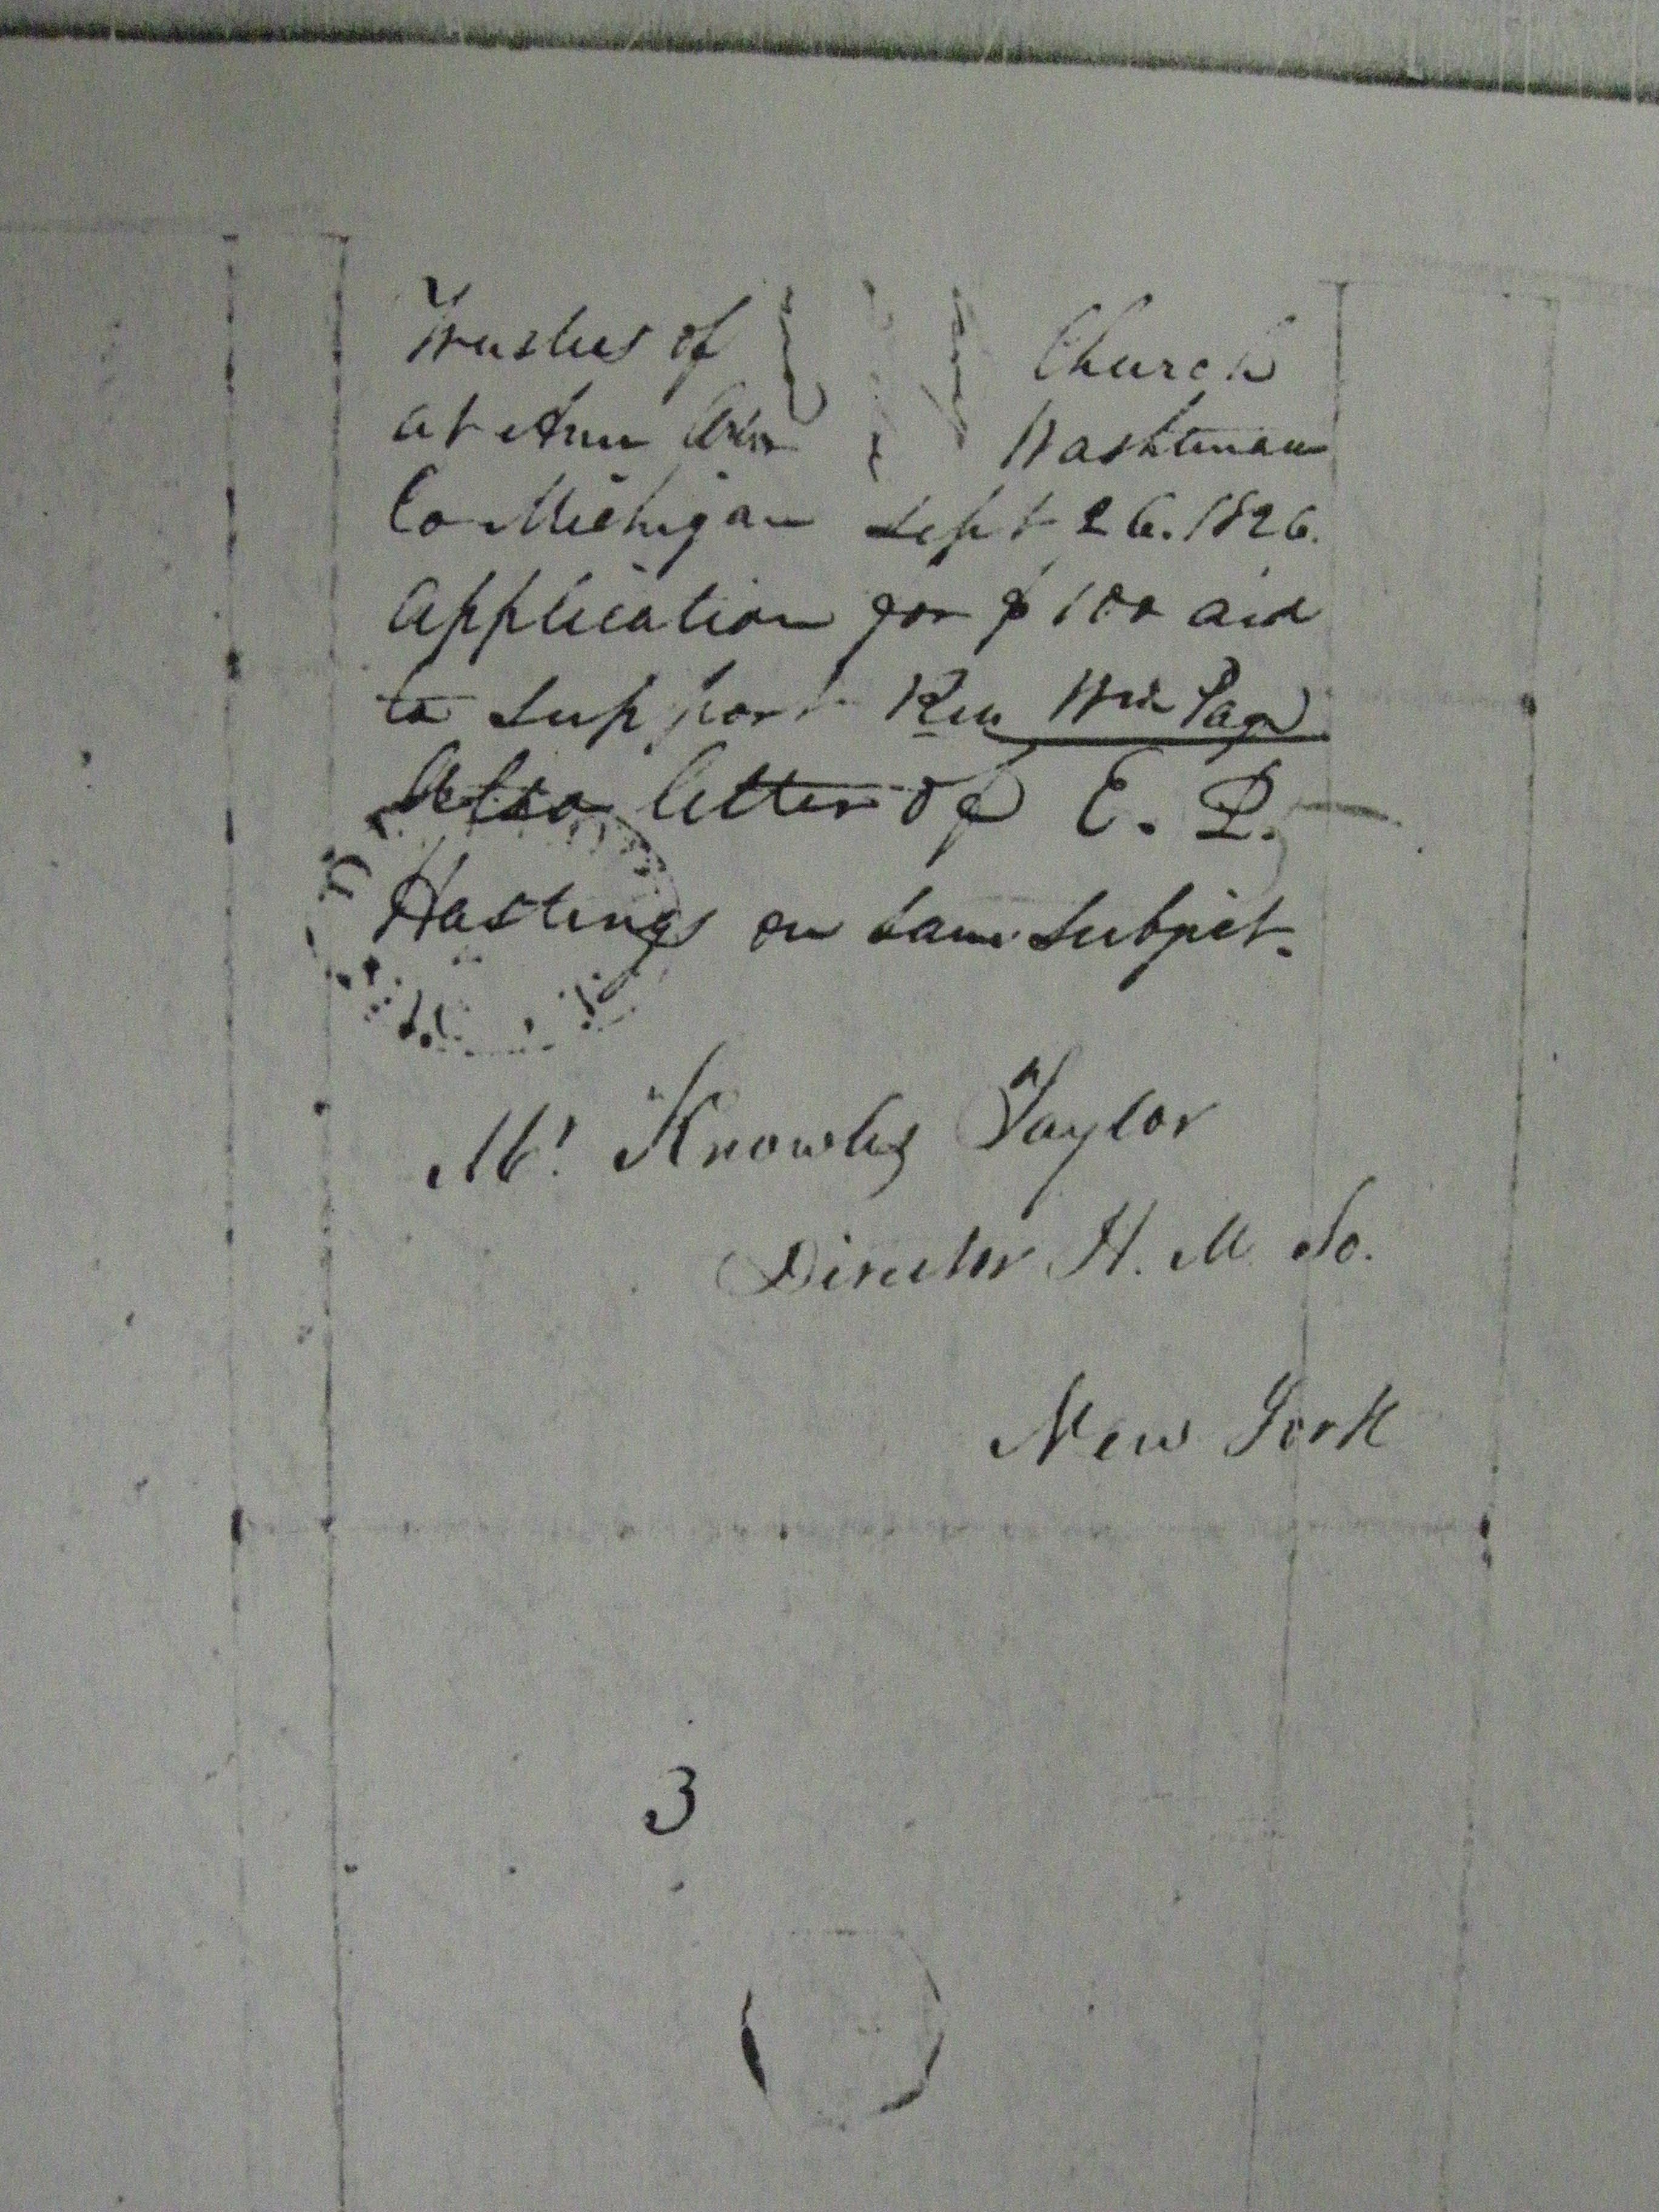 Trustees of Church
at Ann Arbor Washtenaw
Co Michigan Sept 26. 1826.
Application for $100 aid
to support Rev Wm Page
Also letter of E. P.
Hastings on same subject.
Mr. Knowles Taylor
Director H. M. So.
New York
3